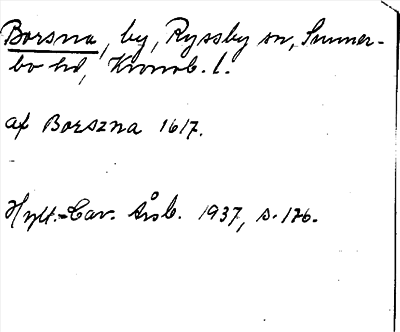 Borsna, by, Ryssby sn, Sunner-
bo hd, Kronob. l.
af Borszna 1617.
Hylt.-Cav. Årsb. 1937, s. 176.